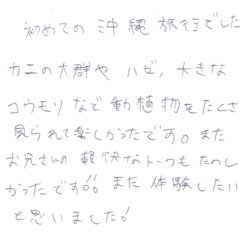 初めての沖縄旅行でした
カニの大群や ハゼ、大きな
コウモリなど動植物をたくさ
見られて楽しかったです。また
お兄さんの軽快なトークもたのし
かったです!! また 体験したい
と思いました!